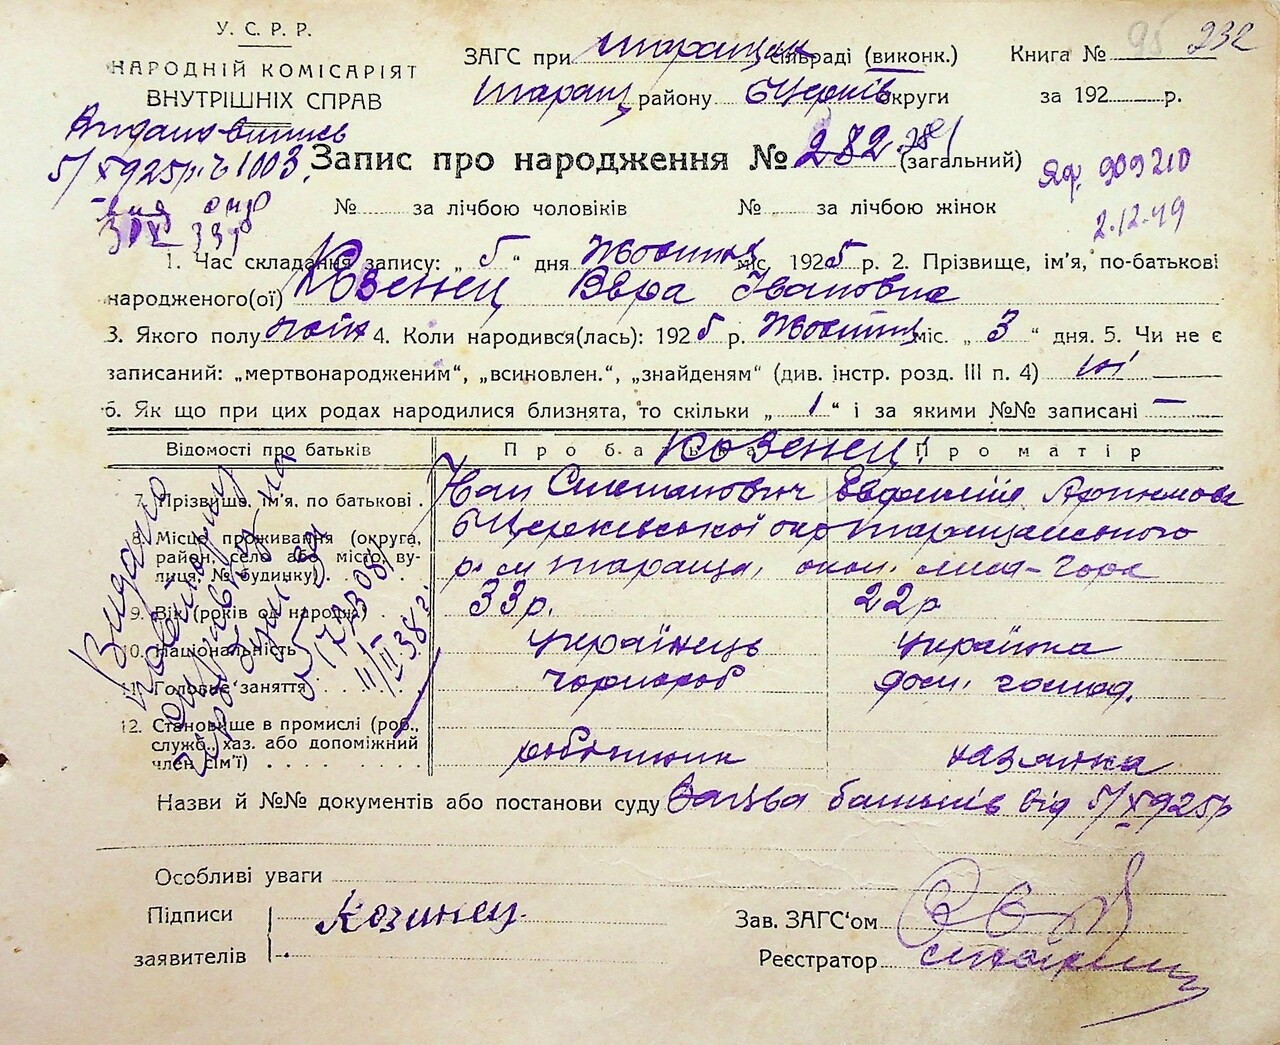 У. С. Р. Р.
НАРОДНІЙ КОМІСАРІЯТ
ВНУТРІШНІХ СПРАВ
95 232
ЗАГС при Таращан сільраді (виконк.) Книга №
Таращ району БЦерків округи за 192 р.
Видано выпись
5/X 925р. № 1003.
Запис про народження № 282 (загальний)
№ за лічбою чоловіків № за лічбою жінок
909210
2.12.49
1. Час складання запису: „ 5 “ дня Жовтня міс. 1925 р. 2. Прізвище, ім’я, по-батькові
народженого(ої) Козенец Вѣра Івановна
3. Якого полу жін 4. Коли народився(лась): 1925 р. Жовтня міс. „ 3 “ дня. 5. Чи не є
записаний: „мертвонародженим“, „всиновлен.“, „знайденям“ (див. інстр. розд. III п. 4) ні
6. Як що при цих родах народилися близнята, то скільки „ 1 “ і за якими №№ записані —
Відомості про батьків Про батька Про матір
Козенец
7. Прізвище, ім’я, по батькові Иван Степанович Евфимія
8. Місце проживання (округа, БЦерківської окр Таращанського
район, село або місто, вулиця, № будинку) р. м Тараща,
9. Вік (років од народж.) 33р. 22р
10. Національність українець українка
11. Головне заняття чорнороб дом. господ.
12. Становище в промислі (роб., служб., хаз. або допоміжний член сім’ї) робітник хазяйка
Видано
11/II 38 г.
Назви й №№ документів або постанови суду Заява батьків від 5/X 925р
Особливі уваги
Підписи Козинец
заявителів
Зав. ЗАГС‘ом
Реєстратор